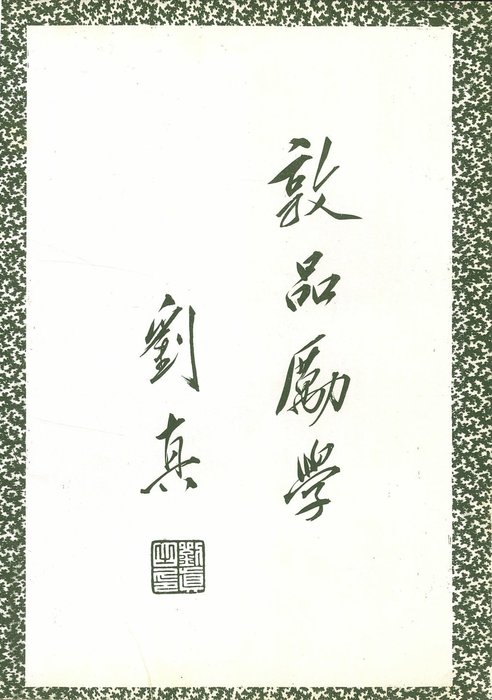 敦品勵學
劉真
劉真之印